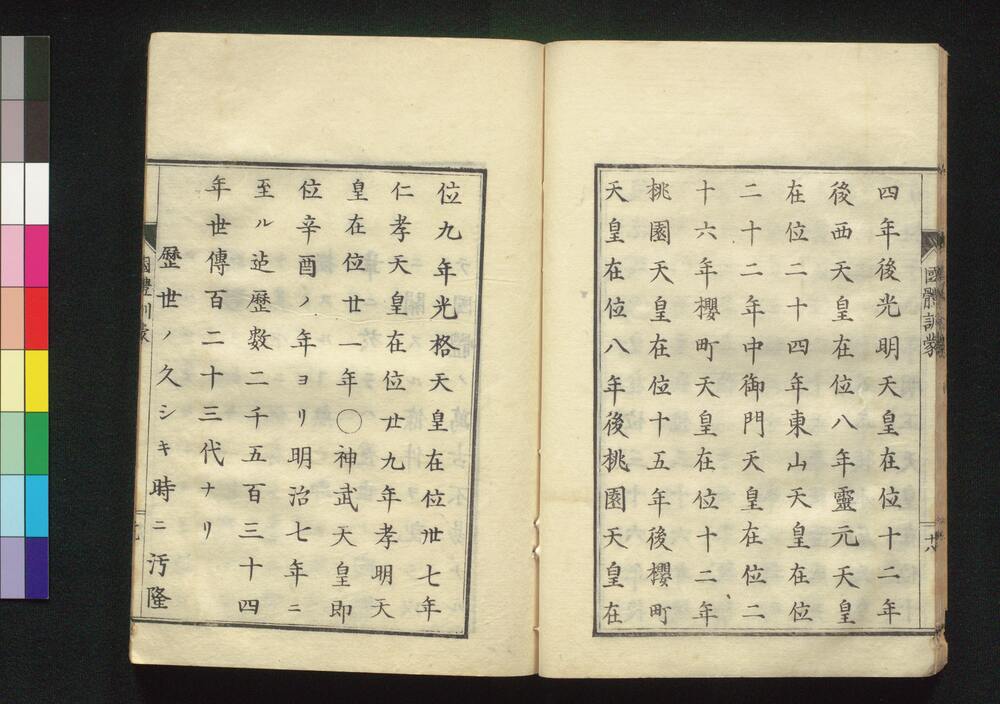 國體訓蒙
十八
四年後光明天皇在位十二年
後西天皇在位八年靈元天皇
在位二十四年東山天皇在位
二十二年中御門天皇在位二
十六年櫻町天皇在位十二年
桃園天皇在位十五年後櫻町
天皇在位八年後桃園天皇在
位九年光格天皇在位卅七年
仁孝天皇在位廿九年孝明天
皇在位廿一年〇神武天皇即
位辛酉ノ年ヨリ明治七年ニ
至ル迄歷數二千五百三十四
年世傳百二十三代ナリ
歷世ノ久シキ時ニ汚隆
國體訓蒙